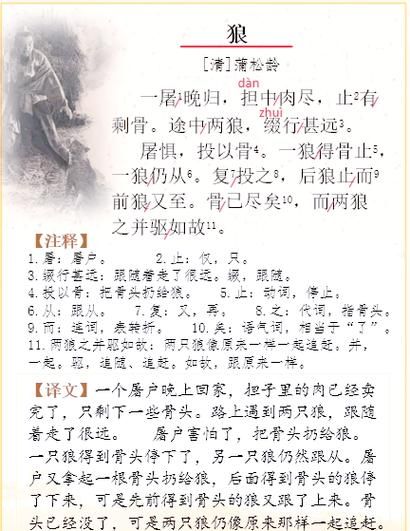 狼
[清]蒲松龄
dàn
一屠1晚归，担中肉尽，止2有
zhuì
剩骨。途中两狼，缀行甚远3。
屠惧，投以骨4。一狼得骨止5，
一狼仍从6。复7投之8，后狼止而9
前狼又至。骨已尽矣10，而两狼
之并驱如故11。
【注释】
1.屠：屠户。 2.止：仅，只。
3.缀行甚远：跟随着走了很远。缀，跟随。
4.投以骨：把骨头扔给狼。 5.止：动词，停止。
6.从：跟从。 7.复：又，再。 8.之：代词，指骨头。
9.而：连词，表转折。 10.矣：语气词，相当于“了”。
11.两狼之并驱如故：两只狼像原来一样一起追赶。并，
一起。驱，追随、追赶。如故，跟原来一样。
【译文】一个屠户晚上回家，担子里的肉已经卖
完了，只剩下一些骨头。路上遇到两只狼，跟随
着走了很远。 屠户害怕了，把骨头扔给狼。
一只狼得到骨头停下了，另一只狼仍然跟从。屠
户又拿起一根骨头扔给狼，后面得到骨头的狼停
了下来，可是先前得到骨头的狼又跟了上来。骨
头已经没了，可是两只狼仍像原来那样一起追赶。